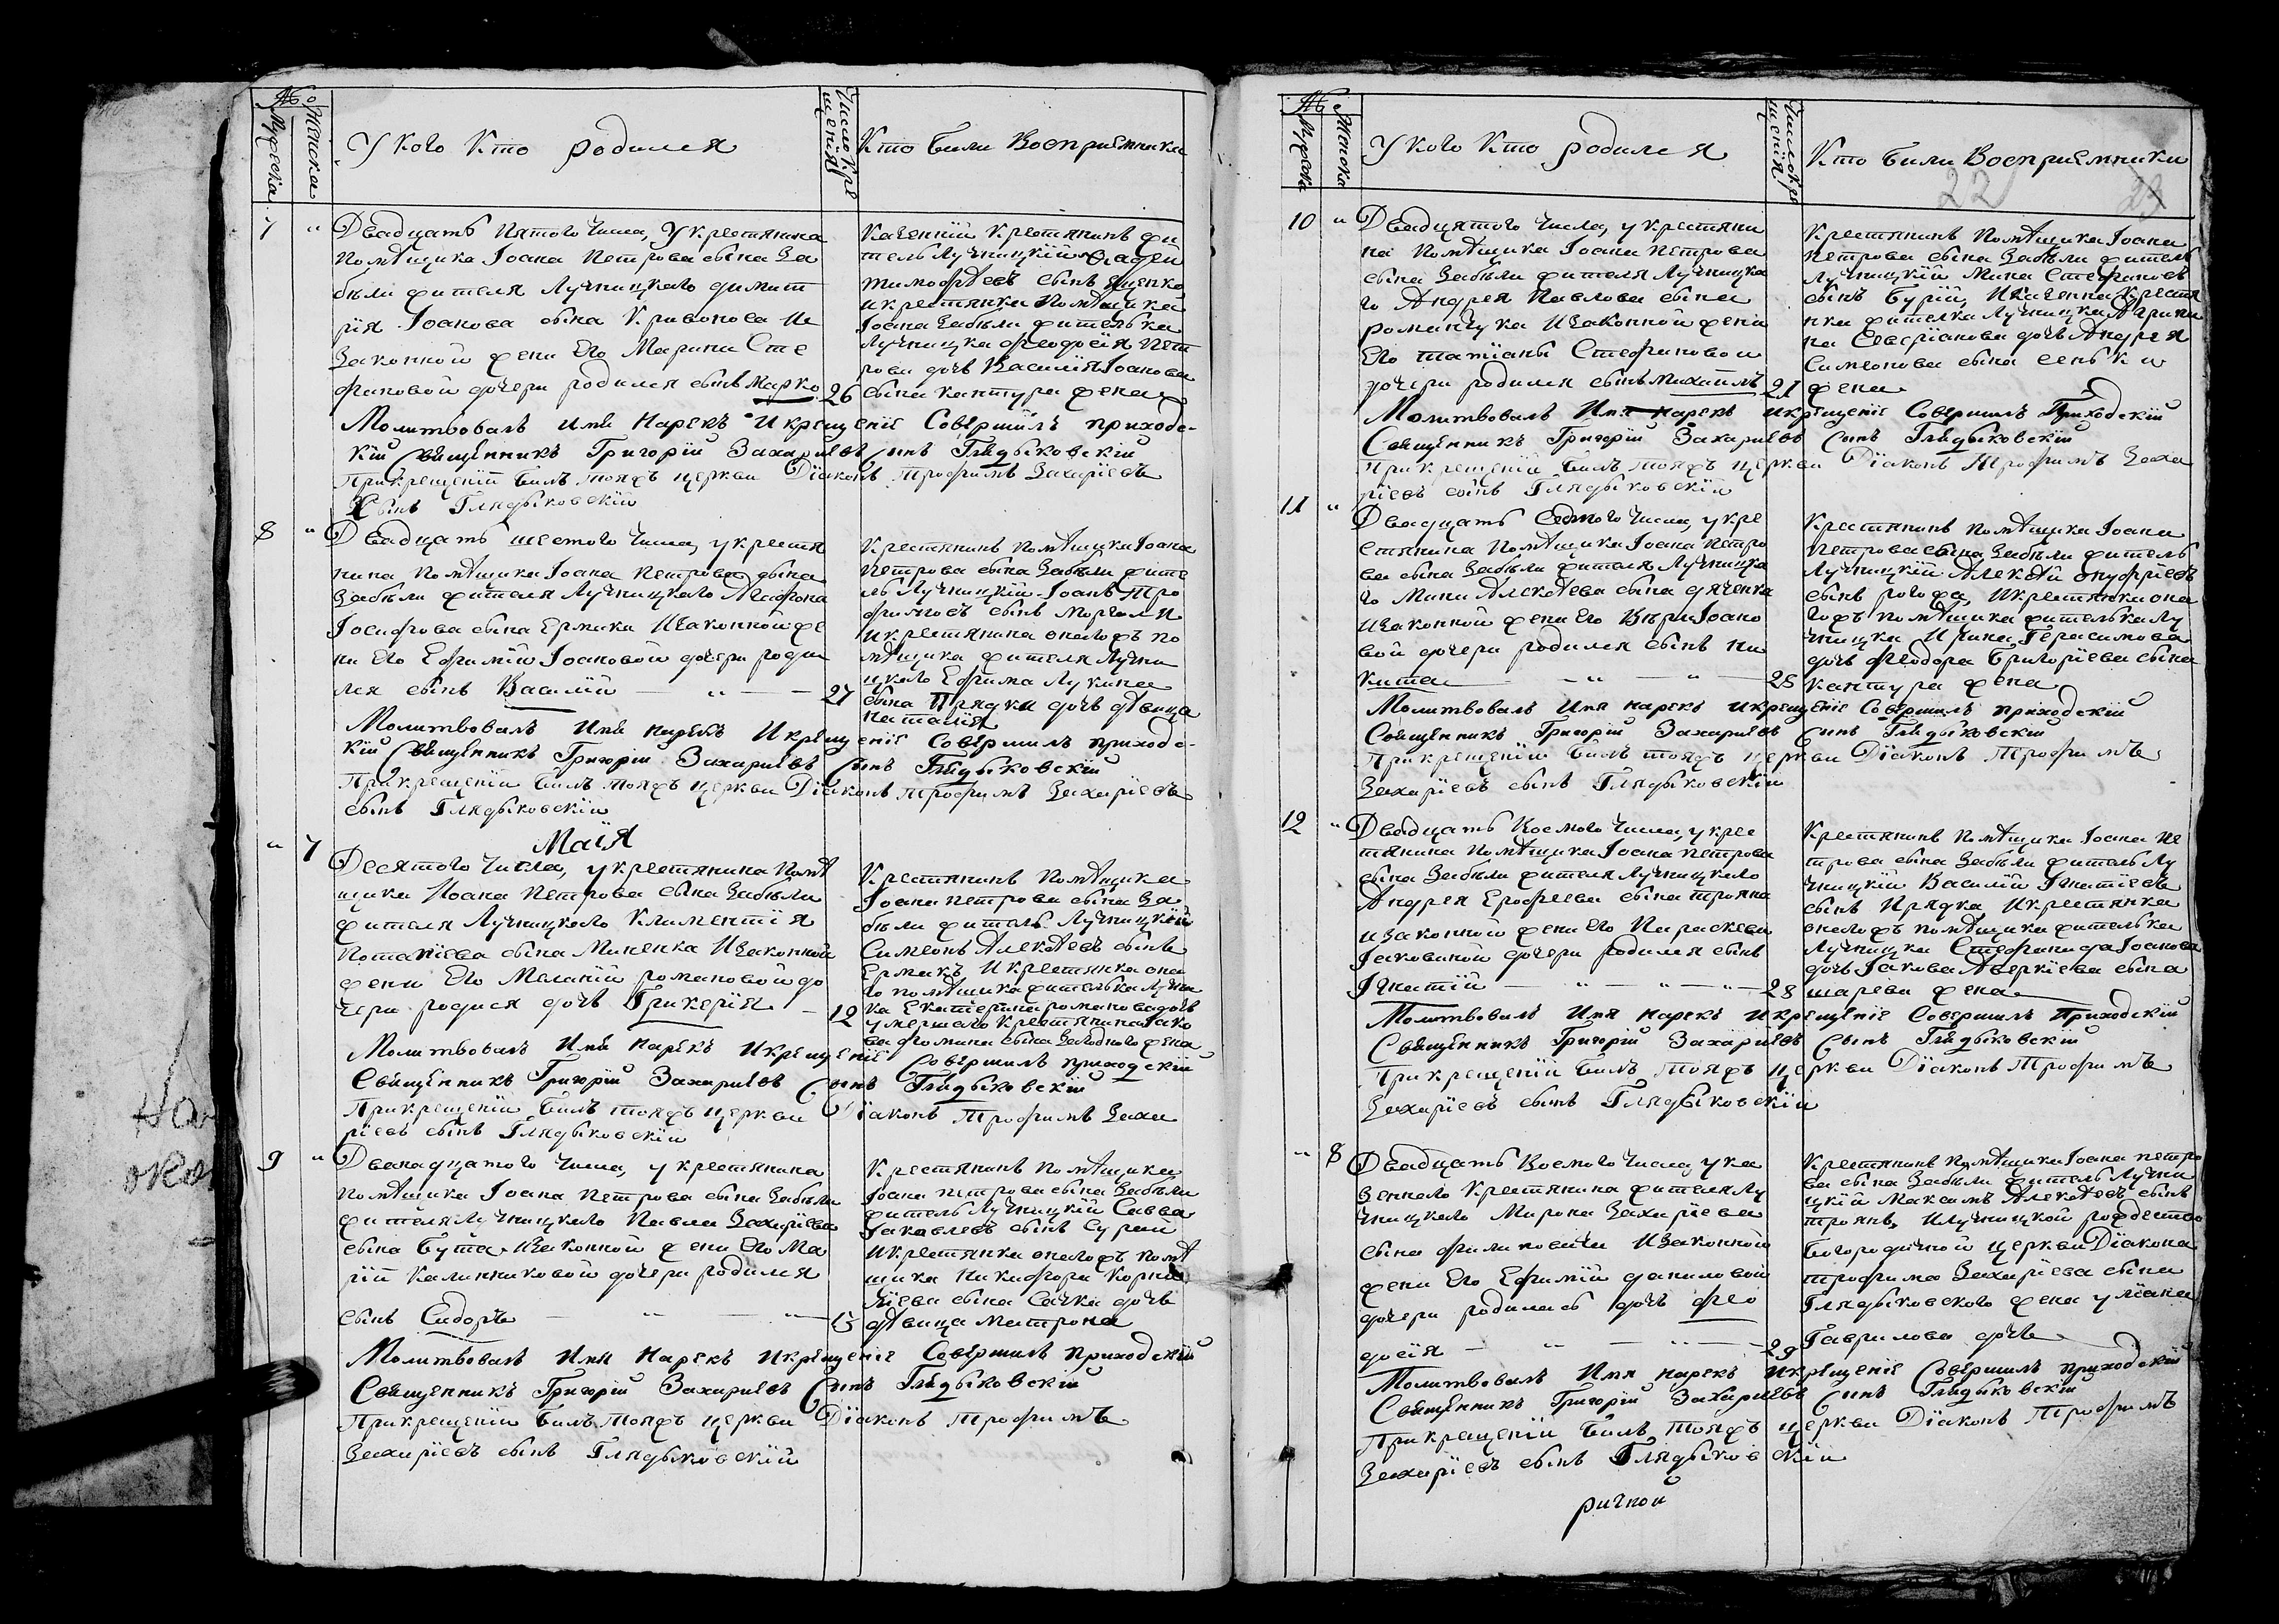 №
Мужеска
Женска
У кого Кто родился
Число Кре
щенія
Кто были Восприемники
7 " Двадцать Пятого Числа, У крестянина
Помѣщика Іоана Петрова сына За
были жителя Лучницкого димит
рія Іоанова сына Кривоноса И
Законной жени Его Марини Сте
фановой дочери родился сынъ Марко 26
Казенній Крестянинъ жи
тель Лучницкій Фадей
тимофѣевъ сынъ Яценко
и крестянки Помѣщика
Іоана Забѣли жителька
Лучницка Феодосія Пет
рова дочь Василія Іоанова
сына кантура жена
Молитвовалъ имя Нарекъ И крещеніе Совершилъ приходс-
кій Священникъ Григорій Захаріевъ Сынъ Глядыковскій
При крещеніи былъ тояжъ церкви Діаконъ Трофимъ Захаріевъ
Сынъ Глядыковскій
8 " Двадцать шестого Числа, у крестя
нина Помѣщика Іоана Петрова сына
Забѣли жителя Лучницкого Агафона
Іосифова сына Ермака И законной же
ни Его Ефиміи Іоановой дочери роди
лся сынъ Василій " — 27
Крестянинъ Помѣщика Іоана
Петрова сына Забѣли жите
ль Лучницкій Іоанъ Тро
фимовъ сынъ Моргаля
и крестянина оногожъ по
мѣщика жителя Лучни
цкого Ефима Лукина
сына Прядки дочь дѣвица
Наталія
Молитвовалъ Имя нарекъ И крещеніе Совершилъ приходс-
кій Священникъ Григорій Захаріевъ Сынъ Глядыковскій
При крещеніи былъ тояжъ церкви Діаконъ Трофимъ Захаріевъ
сынъ Глядыковскій
Маія
" 7 Десятого Числа, у крестянина Помѣ
щика Іоана Петрова сына Забѣли
жителя Лучницкого Климентія
Потапіева сына Миненка И законной
жени Его Меланіи романовой до
чери родися дочь Гликерія — 12
Крестянинъ Помѣщика
Іоана Петрова сына За
бѣли житель Лучницкій
Симеонъ Алексѣевъ сынъ
Ермакъ И крестянка она
го помѣщика жителька Лучни
ка Екатерина романова дочь
умершаго крестянина Іако
ва фомина сына Загоднего жена
Молитвовалъ Имя Нарекъ И крещеніе Совершилъ приходскій
Священникъ Григорій Захаріевъ Сынъ Глядыковскій
При крещеніи былъ тояжъ церкви Діаконъ Трофимъ Заха
ріевъ сынъ Глядыковскій
9 " Дванадцатого Числа, у крестянина
Помѣщика Іоана Петрова сына Забѣли
жителя Лучницкого Павла Захаріева
сына Бута И законной жени Его Ма
ріи Калинниковой дочери родился
сынъ Сидоръ — " — " — 15
Крестянинъ Помѣщика
Іоана Петрова сына Забѣли
житель Лучницкій Савва
Іаковлевъ сынъ Сурай
И крестянки оногожъ помѣ
щика Никифора Корни
ліева сына Сачка дочь
дѣвица Матрона
Молитвовалъ Имя Нарекъ И крещеніе Совершилъ приходскій
Священникъ Григорій Захаріевъ Сынъ Глядыковскій
При крещеніи былъ тояжъ церкви Діаконъ Трофимъ
Захаріевъ сынъ Глядыковскій
№
Мужеска
Женска
У кого Кто родился
Число Кре
щенія
Кто были Восприемники
22 23
10 " Двадцятого Числа, у крестяни
на Помѣщика Іоана Петрова
сына Забѣли жителя Лучницка
го Андрея Павлова сына
романчука И законной жени
Его татіаны Стефановой
дочери родился сынъ Михаилъ 21
Крестянинъ Помѣщика Іоана
Петрова сына Забѣли житель
Лучницкій Мина Стефановъ
сынъ Бурій, И казенна Крестя
нка жителка Лучницка Агрипи
на Севєріанова дочь Андрея
Симеонова сына сеньки
жена
Молитвовалъ Имя нарекъ и крещеніе Совершилъ Приходскій
Священникъ Григорій Захаріевъ Сынъ Глядыковскій
При крещеніи былъ тояжъ церкви Діаконъ Трофимъ Заха
ріевъ сынъ Глядыковскій
11 " Двадцать Седмого Числа, у кре
стянина Помѣщика Іоана Петро
ва сына Забѣли жителя Лучницка
го Мини Алексѣева сына дяченка
И законной жени Его Вѣри Іоано
вой дочери родился сынъ Ни
кита — " — " — 28
Крестянинъ Помѣщика Іоана
Петрова сына Забѣли житель
Лучницкій Алексѣй онуфріевъ
сынъ рогожа, И крестянки она
гожъ помѣщика жителька Лу
чницка Ирина Герасимова
дочь Феодора Григоріева сына
кантура жена
Молитвовалъ Имя нарекъ и крещеніе Совершилъ приходскій
Священникъ Григорій Захаріевъ Сынъ Глядыковскій
При крещеніи былъ тояжъ церкви Діаконъ Трофимъ
Захаріевъ сынъ Глядыковскій
12 " Двадцать Восмого Числа, у крес
тянина Помѣщика Іоана Петрова
сына Забѣли жителя Лучницкого
Андрея Ерофеева сына трояна
и законной жени Его Параскеви
Іаковиной дочери родился сынъ
Ігнатій — " — " — " — 28
Крестянинъ Помѣщика Іоана Пе
трова сына Забѣли житель Лу
чницкій Василій Ігнатіевъ
сынъ Прядка И крестянка
оногожъ помѣщика жителька
Лучницка Стефанида Іоанова
дочь Іакова Аверкіева сына
шарева жена
Молитвовалъ Имя нарекъ и крещеніе Совершилъ Приходскій
Священникъ Григорій Захаріевъ Сынъ Глядыковскій
При крещеніи былъ тояжъ церкви Діаконъ Трофимъ
Захаріевъ сынъ Глядыковскій
" 8 Двадцать Восмого Числа, у ка
зеннаго Крестянина жителя Лу
чницкаго Мирона Захаріева
сына филиповича И законной
жени Его Ефиміи даниловой
дочери родилась дочь Фео
досія — " — " — 29
Крестянинъ Помѣщика Іоана Петро
ва сына Забѣли житель Лучни
цкій Максимъ Алексѣевъ сынъ
троянъ, И лучницкой рождество
богородичной церкви Діакона
трофима Захаріева сына
Глядыковского жена уліана
Гаврилова дочь
Молитвовалъ Имя нарекъ и крещеніе Совершилъ приходскій
Священникъ Григорій Захаріевъ Сынъ Глядыковскій
При крещеніи былъ тояжъ церкви Діаконъ Трофимъ
Захаріевъ сынъ Глядыковскій
ричной